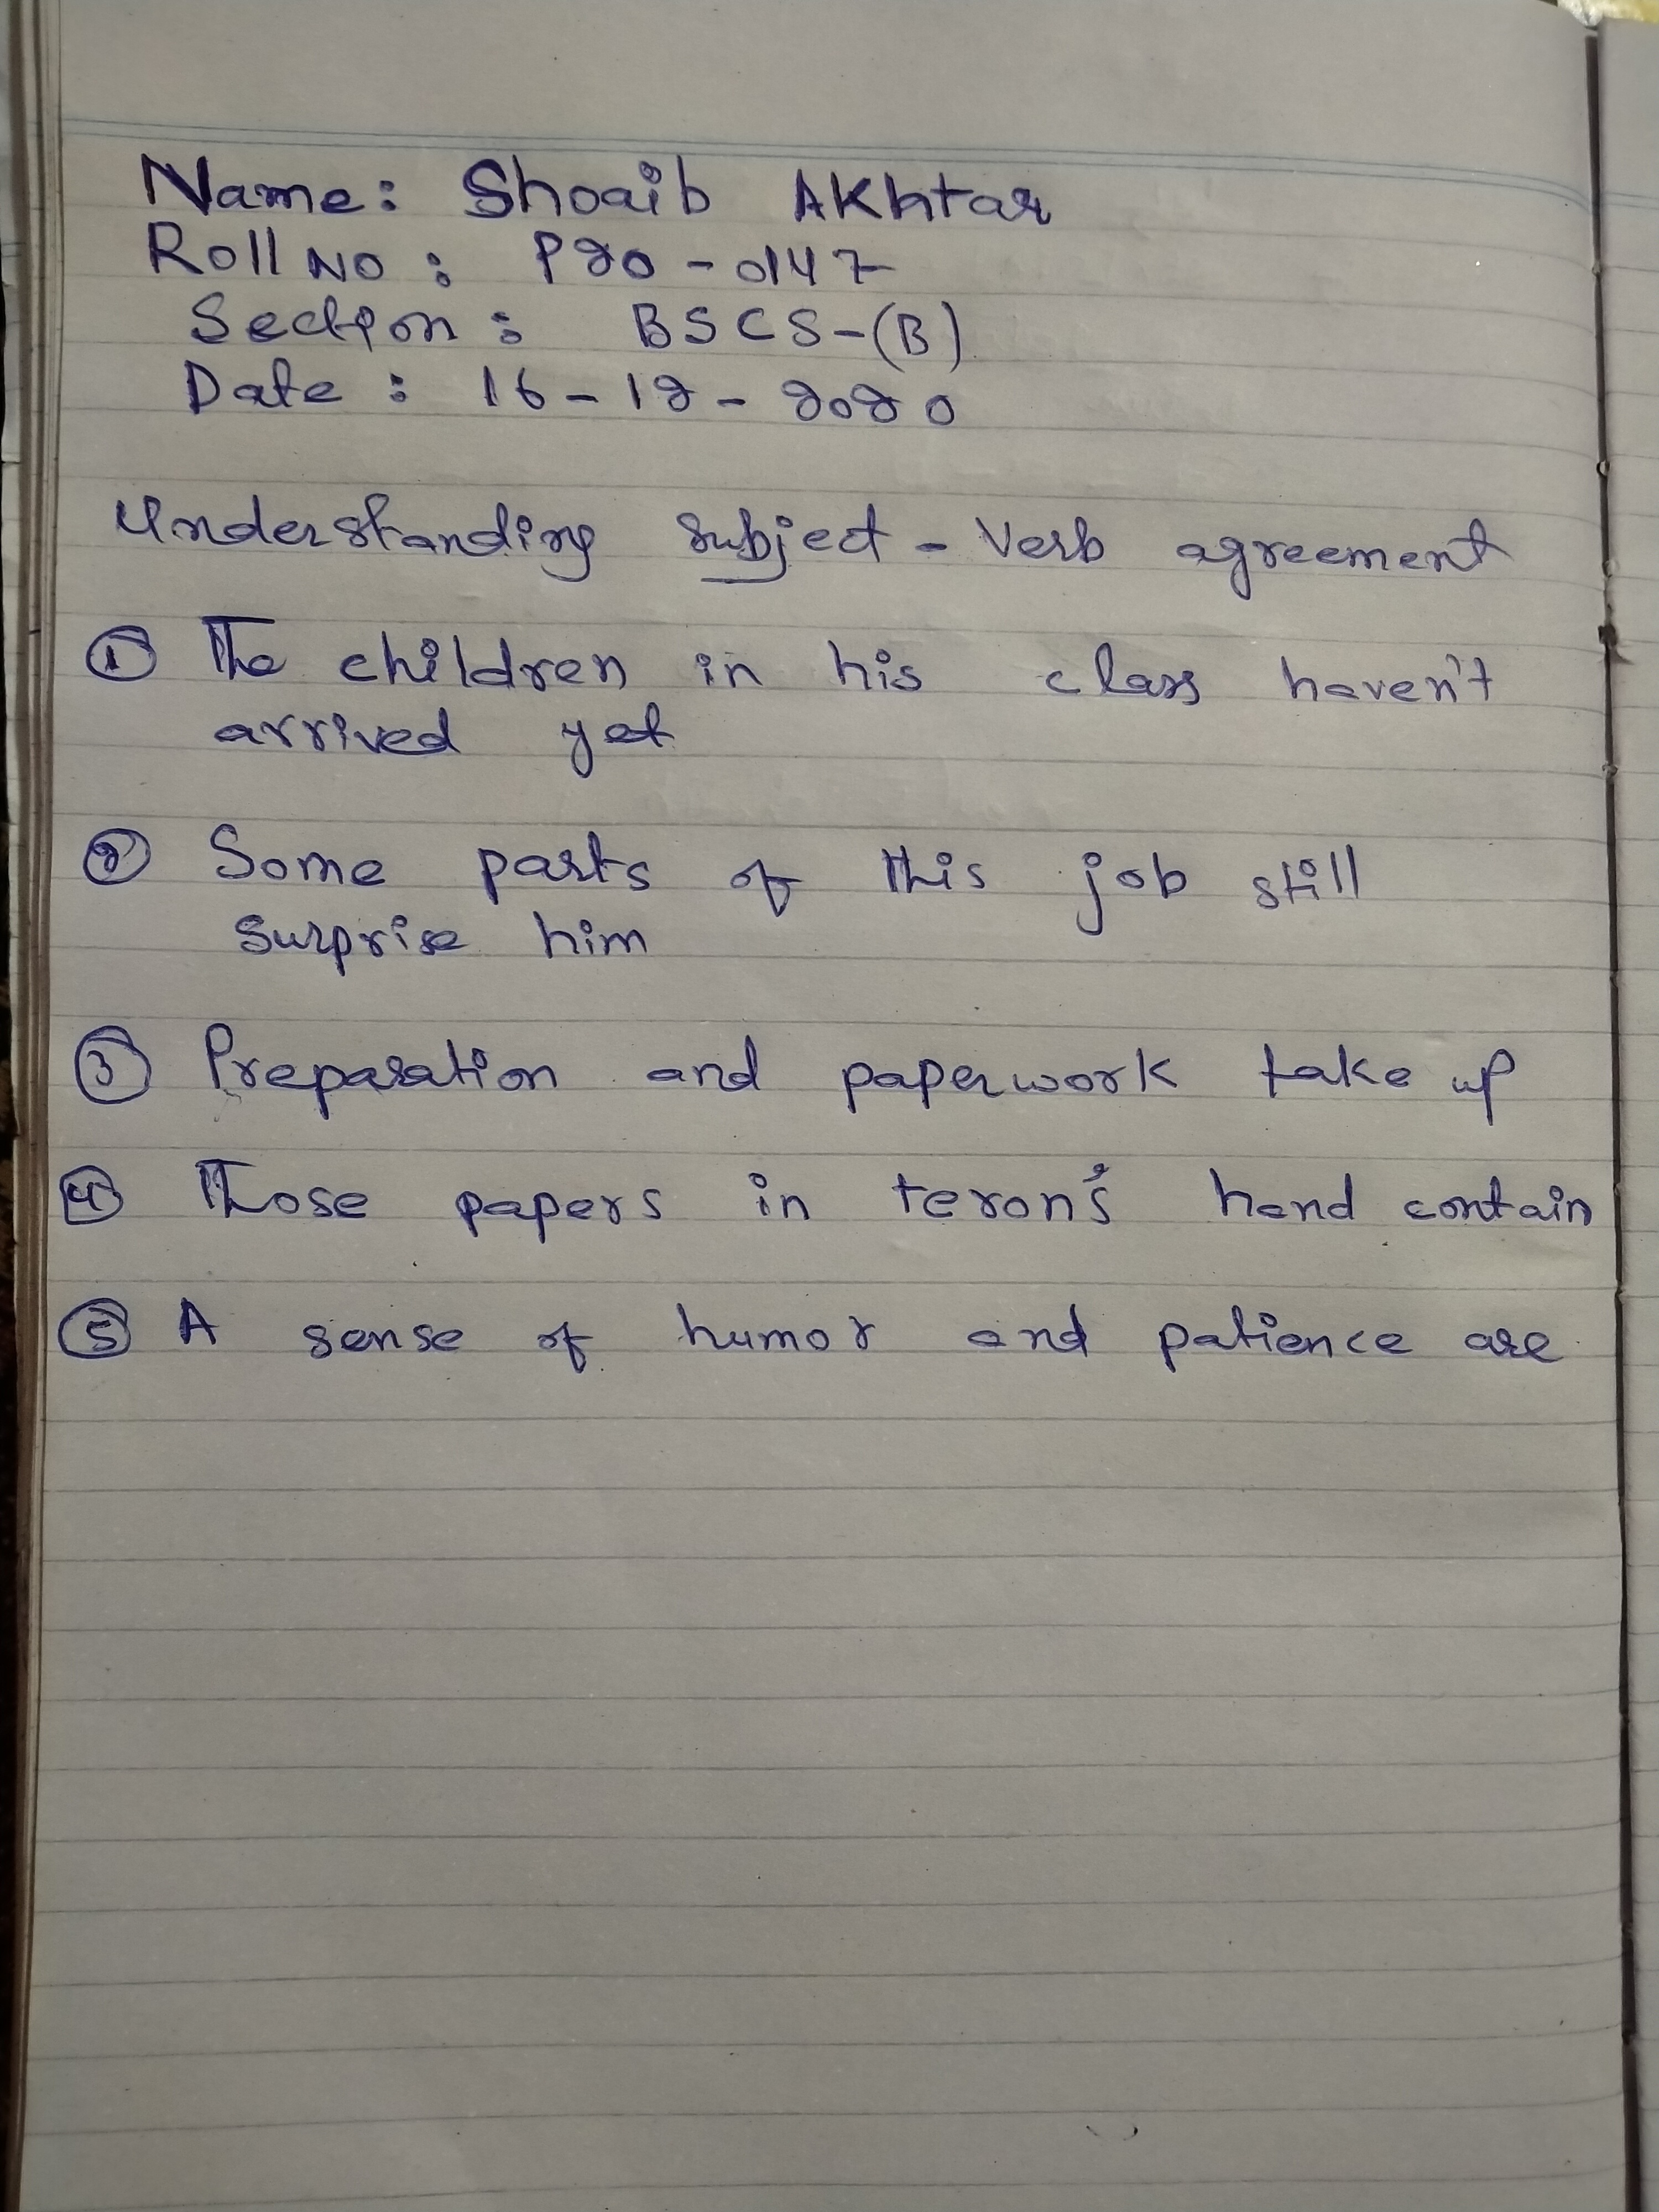 Name: Shoaib Akhtar
Roll No: P20-0147
Section: BSCS-(B)
Date: 16-12-2020
Understanding Subject-Verb agreement
① The children in his class haven't
arrived yet
② Some parts of this job still
surprise him
③ Preparation and paperwork take up
④ Those papers in teron's hand contain
⑤ A sense of humor and patience are